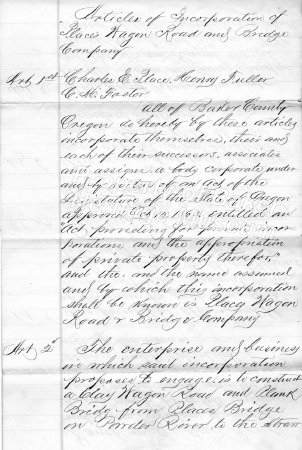 Articles of Incorporation of
Places Wagon Road and Bridge
Company
Art. 1st Charles E. Place, Henry Fuller
C. M. Foster
all of Baker County
Oregon do hereby by these articles
incorporate themselves, their and
each of their successors, associates
and assigns a body corporate under
and by virtue of an Act of the
Legislature of the State of Oregon
approved Oct. 1862 entitled an
Act providing for private incor
porations and the appropriation
of private property therefor,
and the name assumed
and by which this incorporation
shall be known is Places Wagon
Road & Bridge Company
Art 2d The enterprise and business
in which said incorporation
proposes to engage, is to construct
a Clay Wagon Road and Plank
Bridg from Places Bridge
on Powder River to the